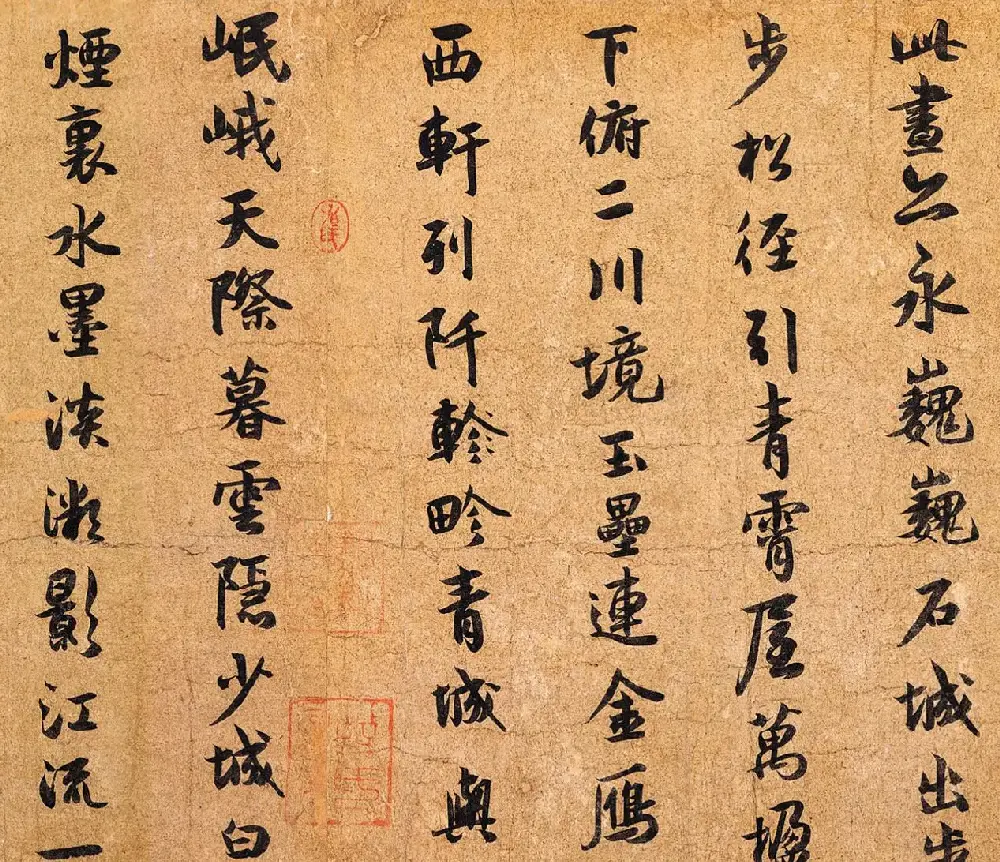 此畫永巍巍石城出
步松徑引青霄萬
下俯二川境玉壘連金鴈
西軒列阡軫畛青城與
岷峨天際暮雲隱少城白
煙裏水墨淡影江流一